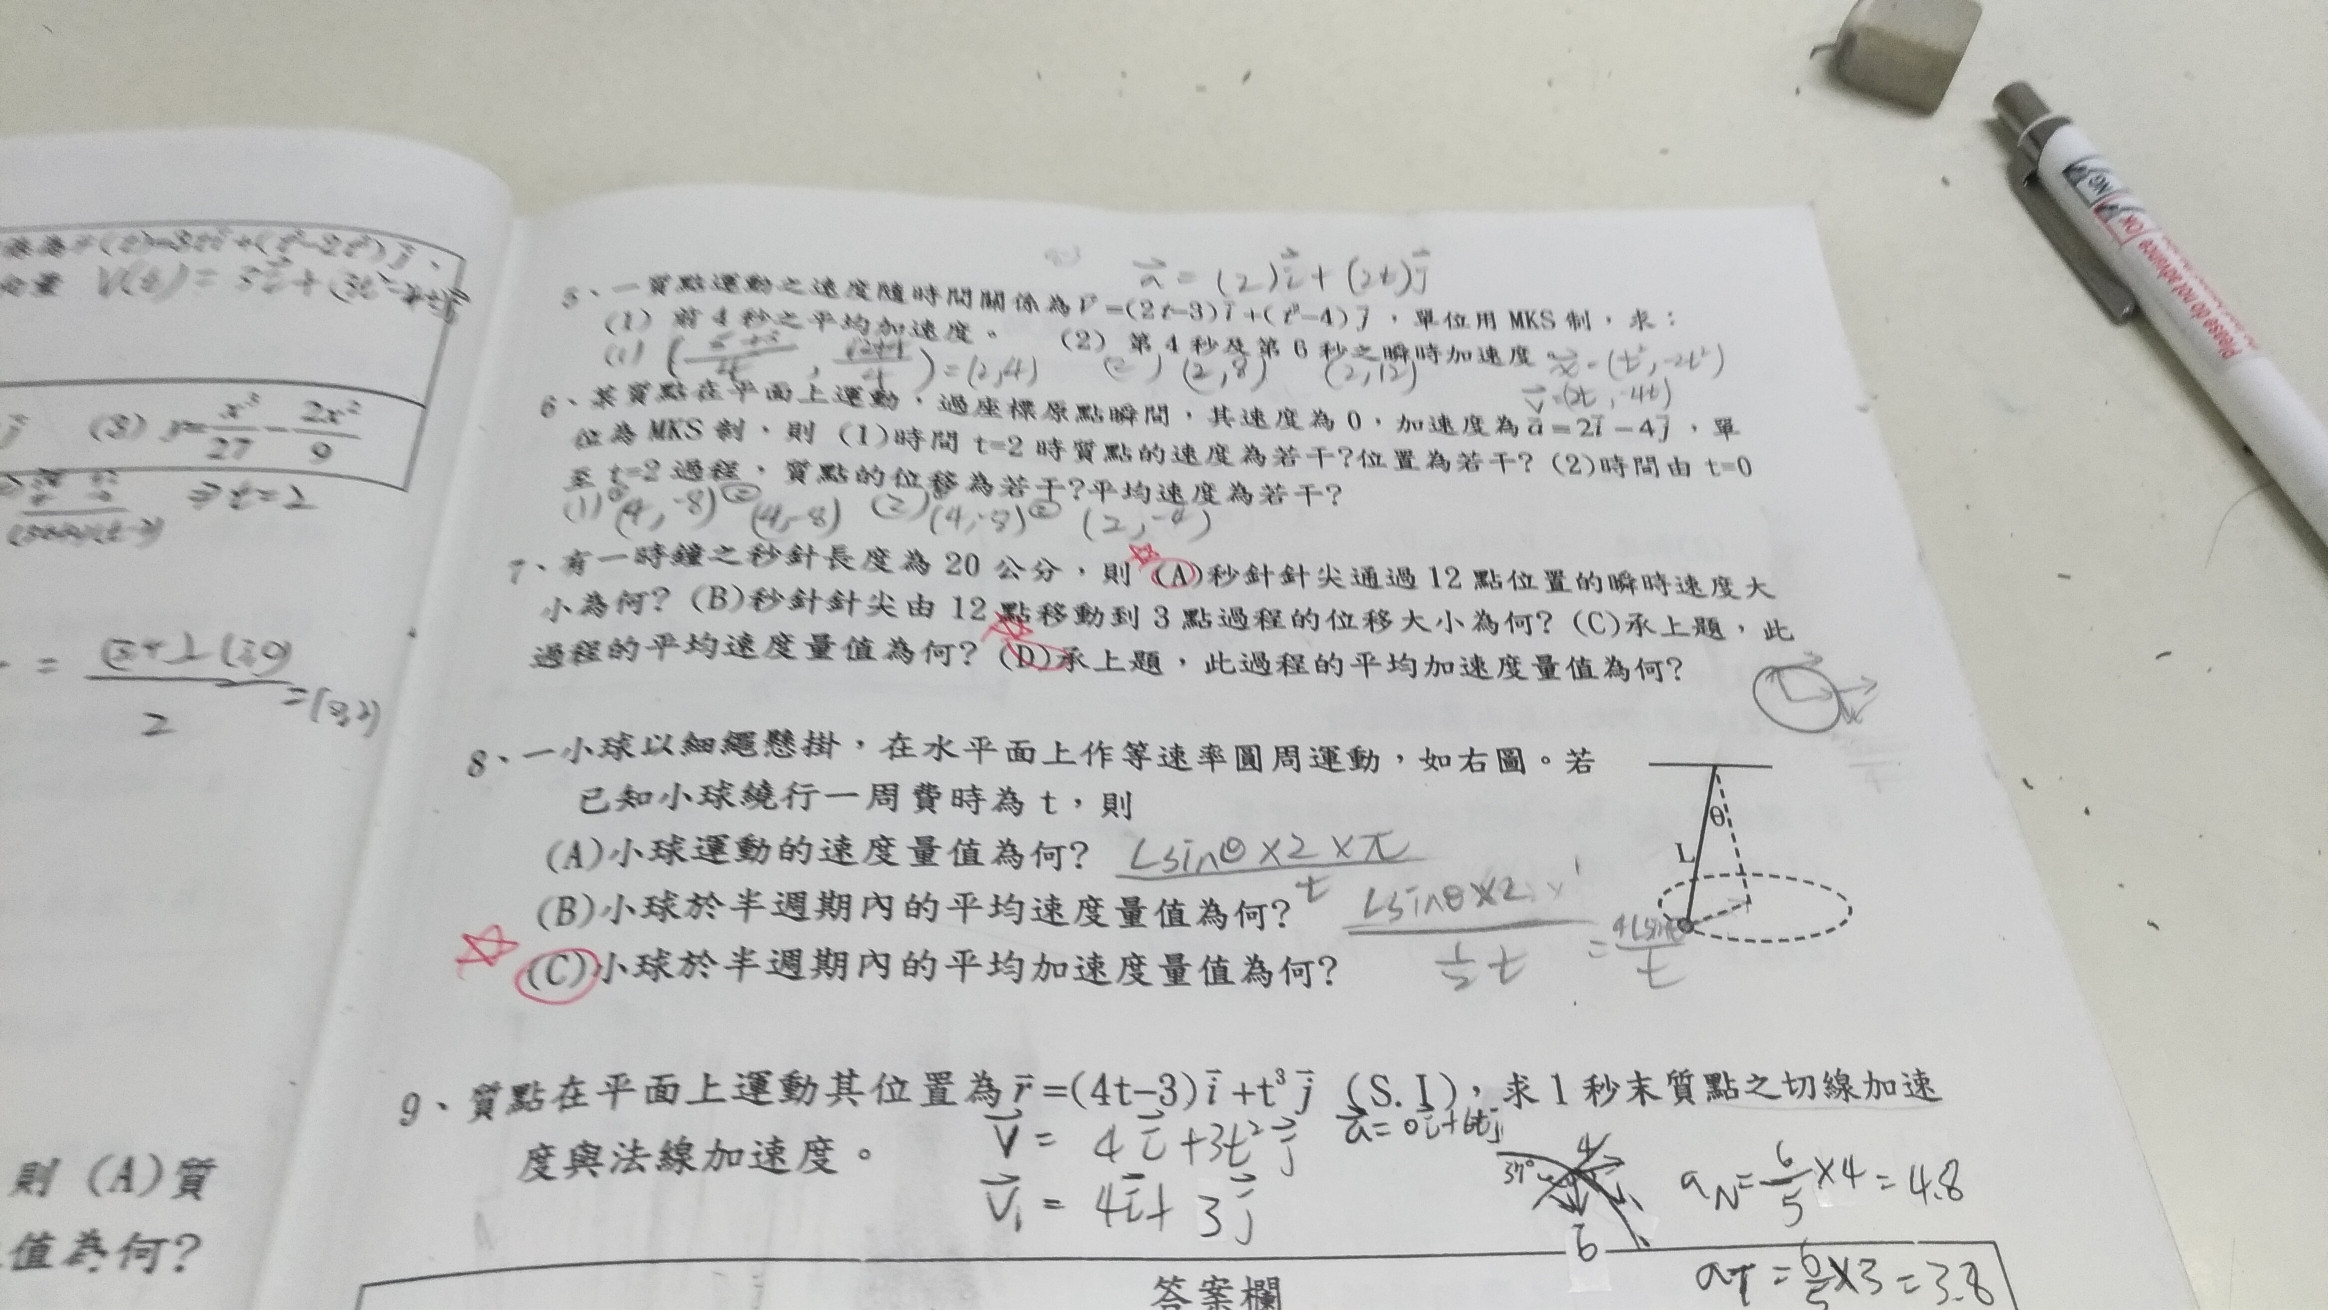 V(t) = 3i + (3t²-4t)j
(3) y= x³/27 - 2x²/9
⇒ t=2
2
則 (A)質
值為何?
a = (2)i + (2t)j
5、一質點運動之速度隨時間關係為 V=(2t-3)i+(t²-4)j，單位用 MKS 制，求：
(1) 前 4 秒之平均加速度。 (2) 第 4 秒及第 6 秒之瞬時加速度
x=(t²,-2t²)
(1) = (2,4) (2) (2,8) (2,12)
v=(2t,-4t)
6、某質點在平面上運動，過座標原點瞬間，其速度為 0，加速度為 a=2i-4j，單
位為 MKS 制，則 (1)時間 t=2 時質點的速度為若干?位置為若干? (2)時間由 t=0
至 t=2 過程，質點的位移為若干?平均速度為若干?
(1) ① (4,-8) ② (4,-8) (2) ① (4,-8) ② (2,-4)
7、有一時鐘之秒針長度為 20 公分，則 (A)秒針針尖通過 12 點位置的瞬時速度大
小為何? (B)秒針針尖由 12 點移動到 3 點過程的位移大小為何? (C)承上題，此
過程的平均速度量值為何? (D)承上題，此過程的平均加速度量值為何?
8、一小球以細繩懸掛，在水平面上作等速率圓周運動，如右圖。若
已知小球繞行一周費時為 t，則
θ
L
(A)小球運動的速度量值為何? Lsinθ×2×π / t
(B)小球於半週期內的平均速度量值為何? Lsinθ×2 / ½t = 4Lsinθ / t
(C)小球於半週期內的平均加速度量值為何?
9、質點在平面上運動其位置為 r=(4t-3)i+t³j (S.I)，求 1 秒末質點之切線加速
度與法線加速度。
V = 4i+3t²j
a = 0i+6tj
V₁ = 4i+3j
37°
4
6
aN = 6/5 ×4 = 4.8
aT = 6/5 ×3 = 3.8
答案欄
NG
OK
Please do not advance